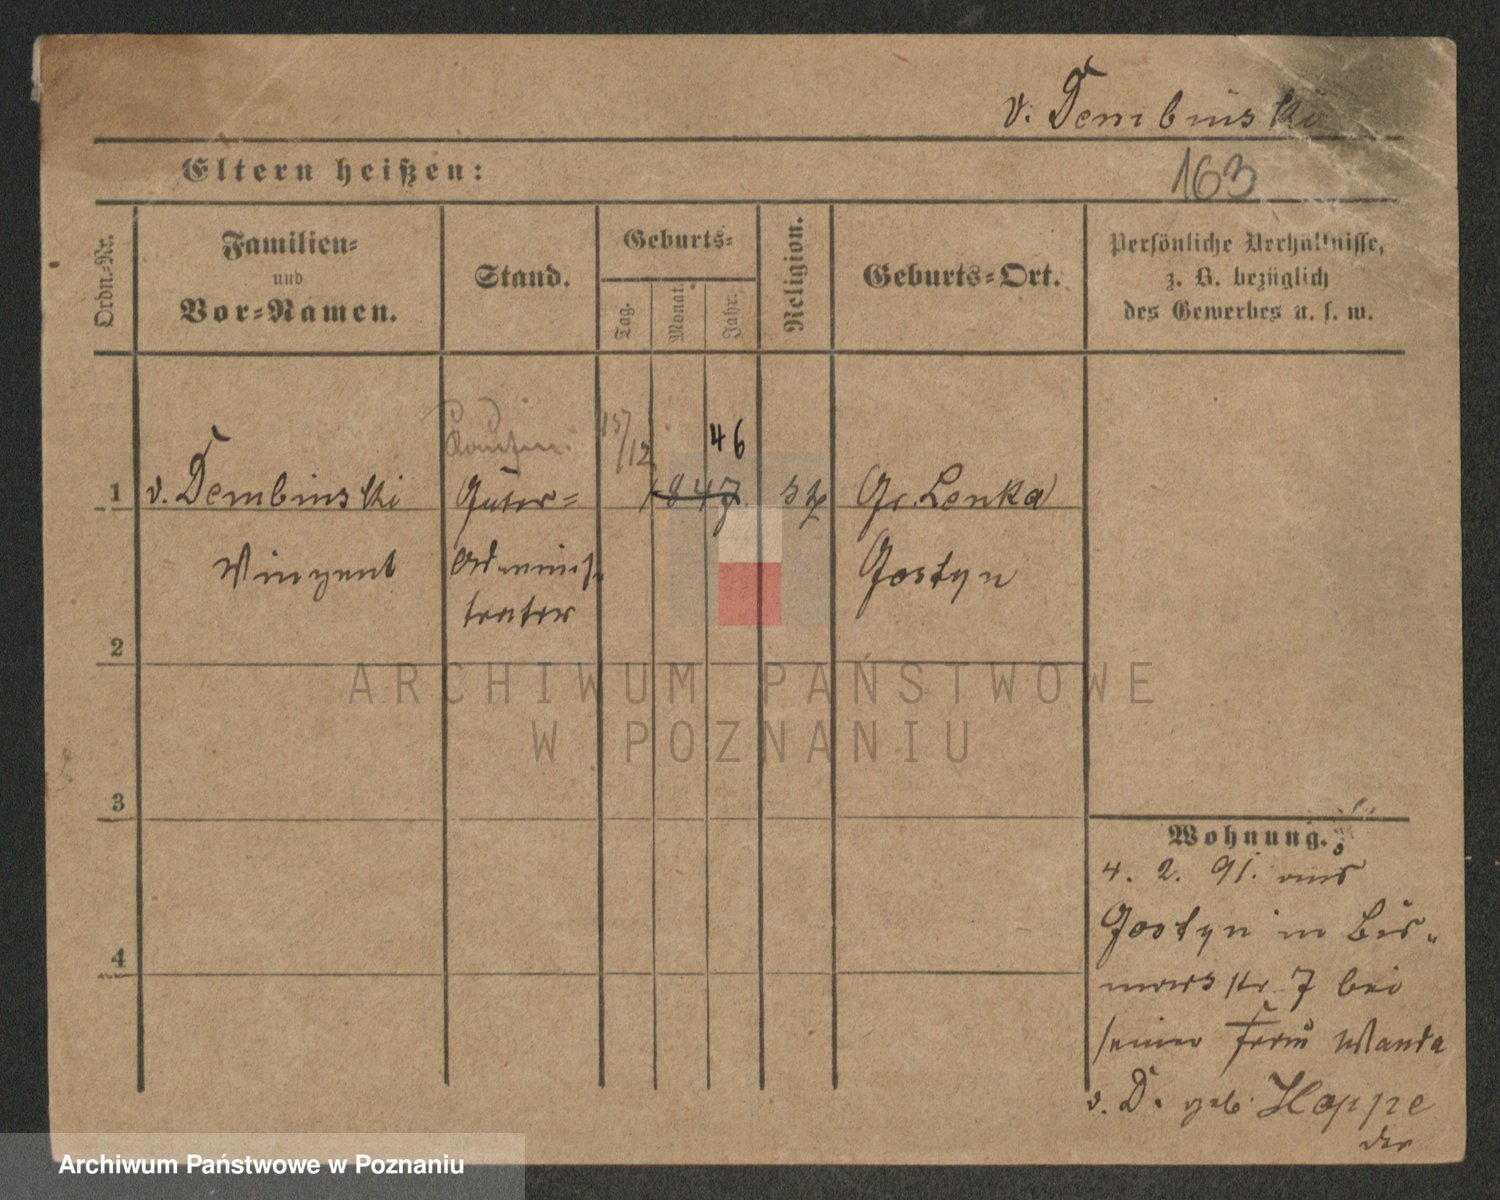 v. Dembinski
Eltern heißen:
163
Ordn.-Nr.
Familien-
und
Vor-Namen.
Stand.
Geburts-
Tag.
Monat.
Jahr.
Religion.
Geburts-Ort.
Persönliche Verhältnisse,
z. B. bezüglich
des Gewerbes u. s. w.
15/12
46
1 v. Dembinski Güter- 1847. Gr. Lenka
Vinzent Adminis- Gostyn
trator
2
3
4
Wohnung.
4. 2. 91. aus
Gostyn in Bis-
marckstr 7 bei
seiner Frau Wanda
v. D. geb. Hoppe
der
ARCHIWUM PAŃSTWOWE
W POZNANIU
Archiwum Państwowe w Poznaniu